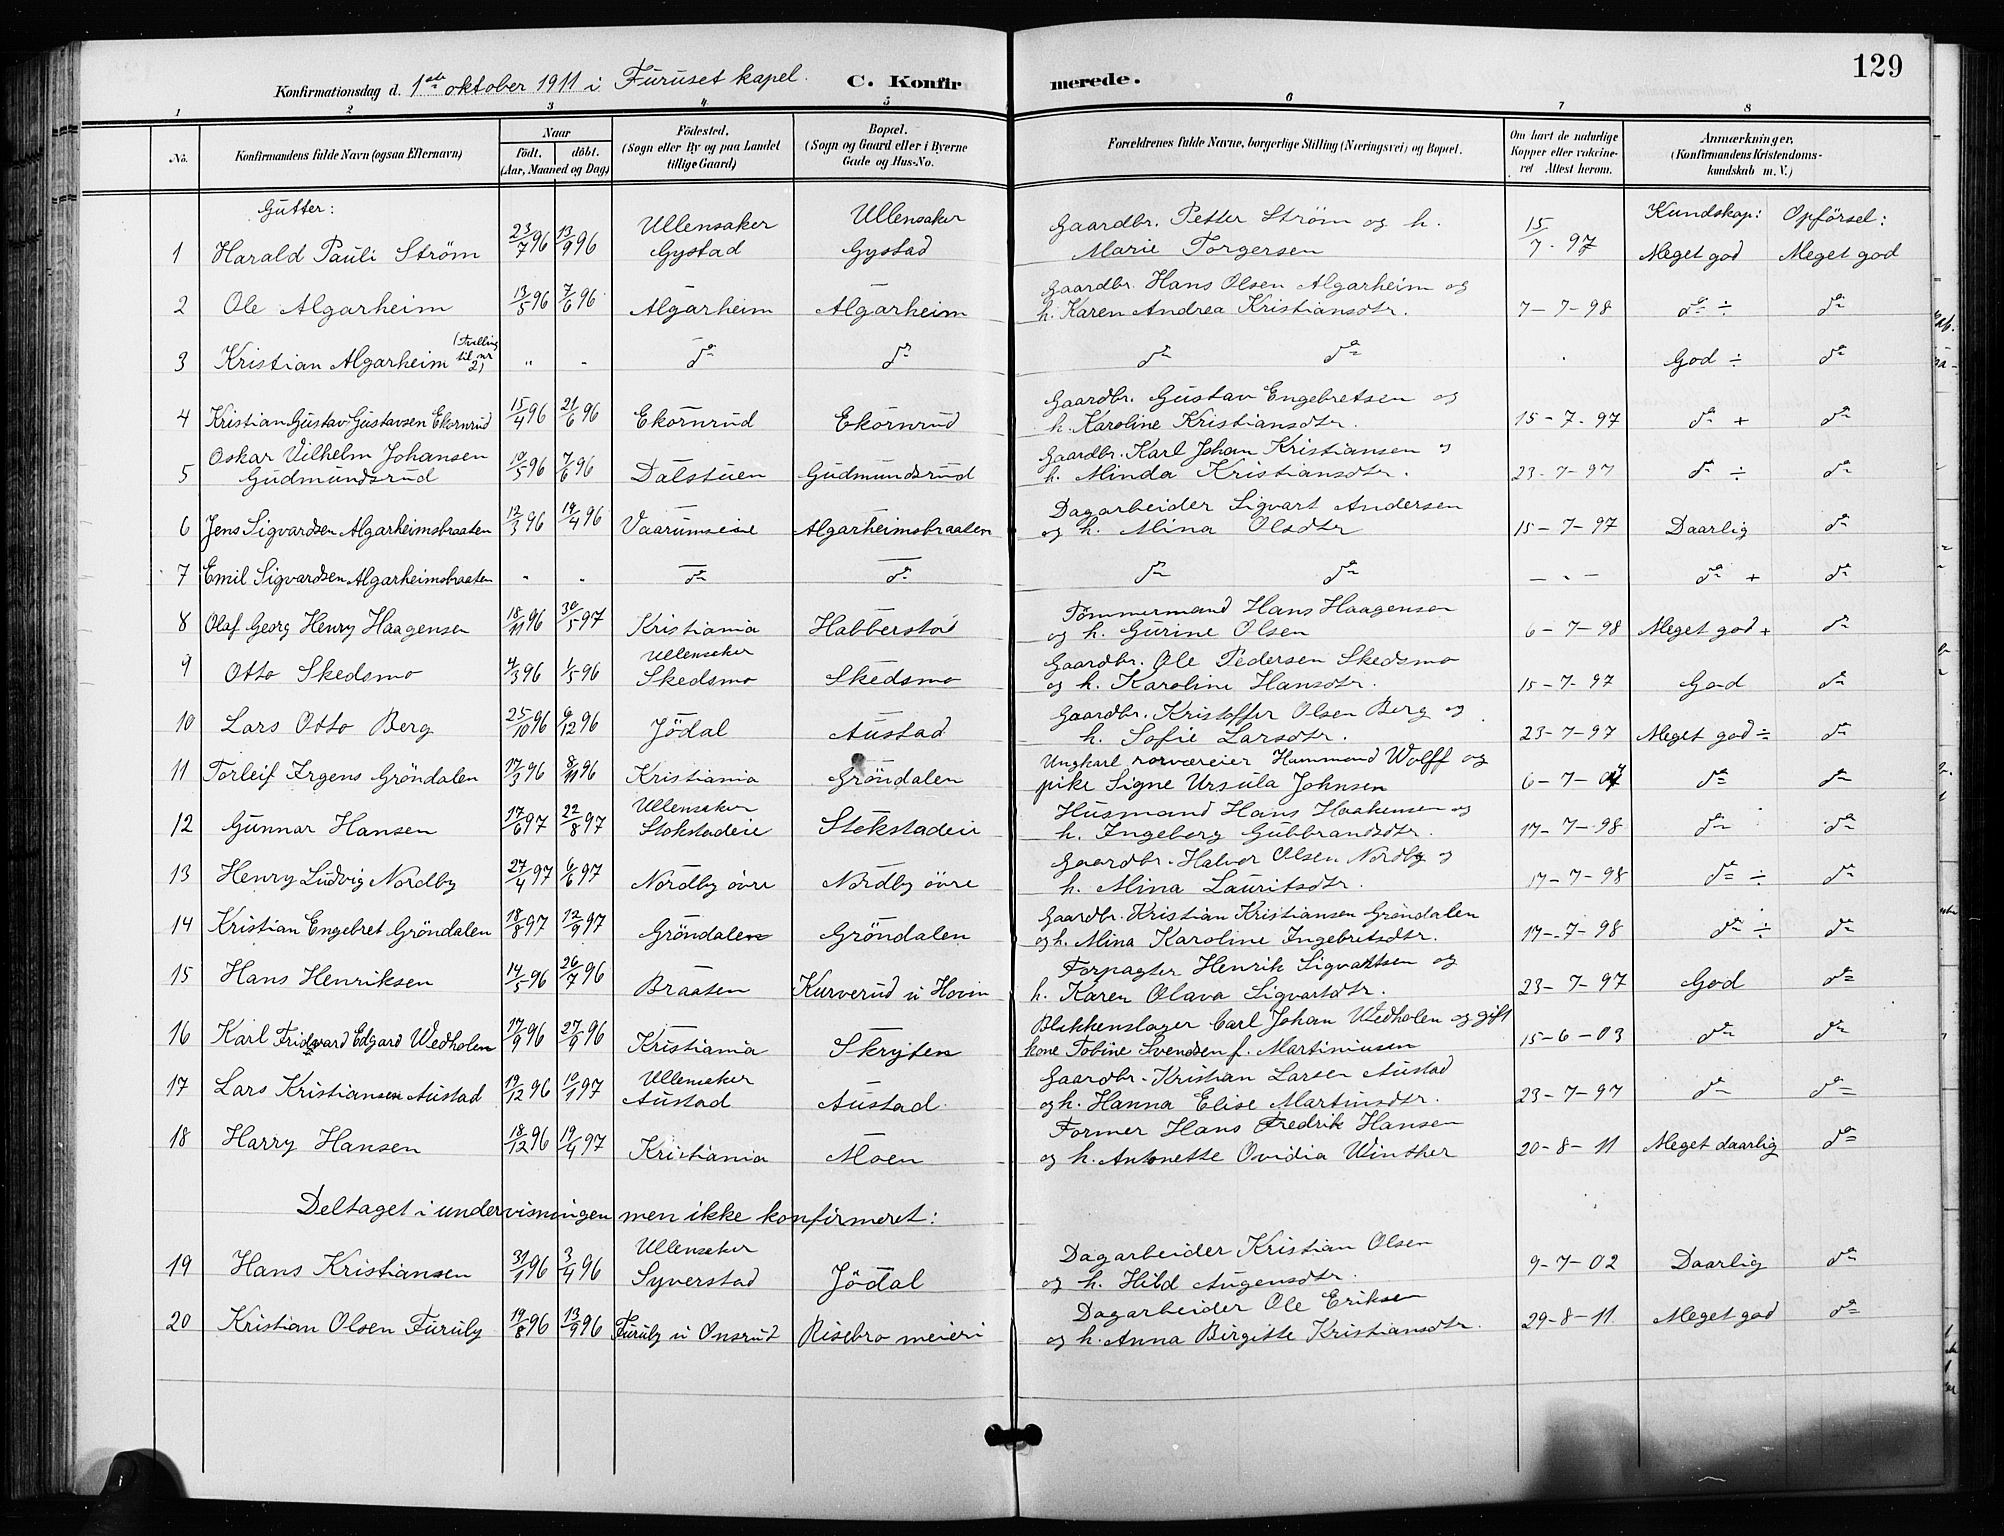 129
Konfirmationsdag d. 1ste oktober 1911 i Furuset kapel. C. Konfirmerede.
1 2 3 4 5 6 7 8
No. Konfirmandens fulde Navn (ogsaa Efternavn) Naar födt. döbt. (Aar, Maaned og Dag) Födested. (Sogn eller By og paa Landet tillige Gaard) Bopæl. (Sogn og Gaard eller i Byerne Gade og Hus-No. Forældrenes fulde Navne, borgerlige Stilling (Næringsvei) og Bopæl. Om havt de naturlige Kopper eller vakcineret Attest herom. Anmærkninger. (Konfirmandens Kristendomskundskab m. V.)
Gutter: Kundskap: Opförsel:
1 Harald Pauli Ström 23/7 96 13/9 96 Ullensaker Gystad Ullensaker Gystad Gaardbr. Petter Ström og h. Marie Torgersen 15/7-97 Meget god Meget god
2 Ole Algarheim 13/5 96 7/6 96 Algarheim Algarheim Gaardbr. Hans Olsen Algarheim og h. Karen Andrea Kristiansdtr. 7-7-98 do ÷ do
3 Kristian Algarheim (Tvilling til nr 2) " " do do do do God ÷ do
4 Kristian Gustav Gustavsen Ekornrud 15/4 96 21/6 96 Ekornrud Ekornrud Gaardbr. Gustav Engebretsen og h. Karoline Kristiansdtr. 15-7-97 do + do
5 Oskar Vilhelm Johansen Gudmundsrud 10/5 96 7/6 96 Dalstuen Gudmundsrud Gaardbr. Karl Johan Kristiansen og h. Minda Kristiansdtr. 23-7-97 do ÷ do
6 Jens Sigvardsen Algarheimsbraaten 12/3 96 19/4 96 Vaarumseie Algarheimsbraaten Dagarbeider Sigvart Andersen og h. Mina Olsdtr 15-7-97 Daarlig do
7 Emil Sigvardsen Algarheimsbraaten " " do do do do - " - do + do
8 Olaf Georg Henry Haagensen 18/11 96 30/5 97 Kristiania Habberstad Tömmermand Hans Haagensen og h. Gurine Olsen 6-7-98 Meget god + do
9 Otto Skedsmo 4/3 96 1/5 96 Ullensaker Skedsmo Skedsmo Gaardbr. Ole Pedersen Skedsmo og h. Karoline Hansdtr. 15-7-97 God do
10 Lars Otto Berg 25/10 96 6/12 96 Jödal Austad Gaardbr. Kristoffer Olsen Berg og h. Sofie Larsdtr. 23-7-97 Meget god ÷ do
11 Torleif Irgens Gröndalen 17/3 96 8/11 96 Kristiania Gröndalen Ungkarl rorværeier Hammond Wolff og pike Signe Ursula Johnsen 6-7-07 do do
12 Gunnar Hansen 17/6 97 22/8 97 Ullensaker Stokstadeie Stokstadeie Husmand Hans Haakensen og h. Ingeborg Gubbrandsdtr. 17-7-98 do do
13 Henry Ludvig Nordby 27/4 97 6/6 97 Nordby övre Nordby övre Gaardbr. Halvor Olsen Nordby og h. Mina Lauritsdtr. 17-7-98 do ÷ do
14 Kristian Engebret Gröndalen 18/8 97 12/9 97 Gröndalen Gröndalen Gaardbr. Kristian Kristiansen Gröndalen og h. Mina Karoline Ingebretsdtr. 17-7-98 do ÷ do
15 Hans Henriksen 14/5 96 26/7 96 Braaten Kurverud u Hovin Forpagter Henrik Sigvartsen og h. Karen Olava Sigvartsdtr. 23-7-97 God do
16 Karl Fridvard Edgard Wedholen 17/9 96 27/9 96 Kristiania Skryten Blikkenslager Carl Johan Wedholen og gift kone Tobine Svendsen f. Martiniusen 15-6-03 do do
17 Lars Kristiansen Austad 19/12 96 10/1 97 Ullensaker Austad Austad Gaardbr. Kristian Larsen Austad og h. Hanna Elise Martinsdtr. 23-7-97 do do
18 Harry Hansen 18/12 96 19/4 97 Kristiania Moen Former Hans Fredrik Hansen og h. Antonette Ovidia Winther 20-8-11 Meget daarlig do
Deltaget i undervisningen men ikke konfirmeret:
19 Hans Kristiansen 31/1 96 3/4 96 Ullensaker Syverstad Jödal Dagarbeider Kristian Olsen og h. Hild Augensdtr. 9-7-02 Daarlig do
20 Kristian Olsen Furuly 19/8 96 13/9 96 Furuly u Onsrud Risebro meieri Dagarbeider Ole Eriksen og h. Anna Birgitte Kristiansdtr. 29-8-11 Meget god do